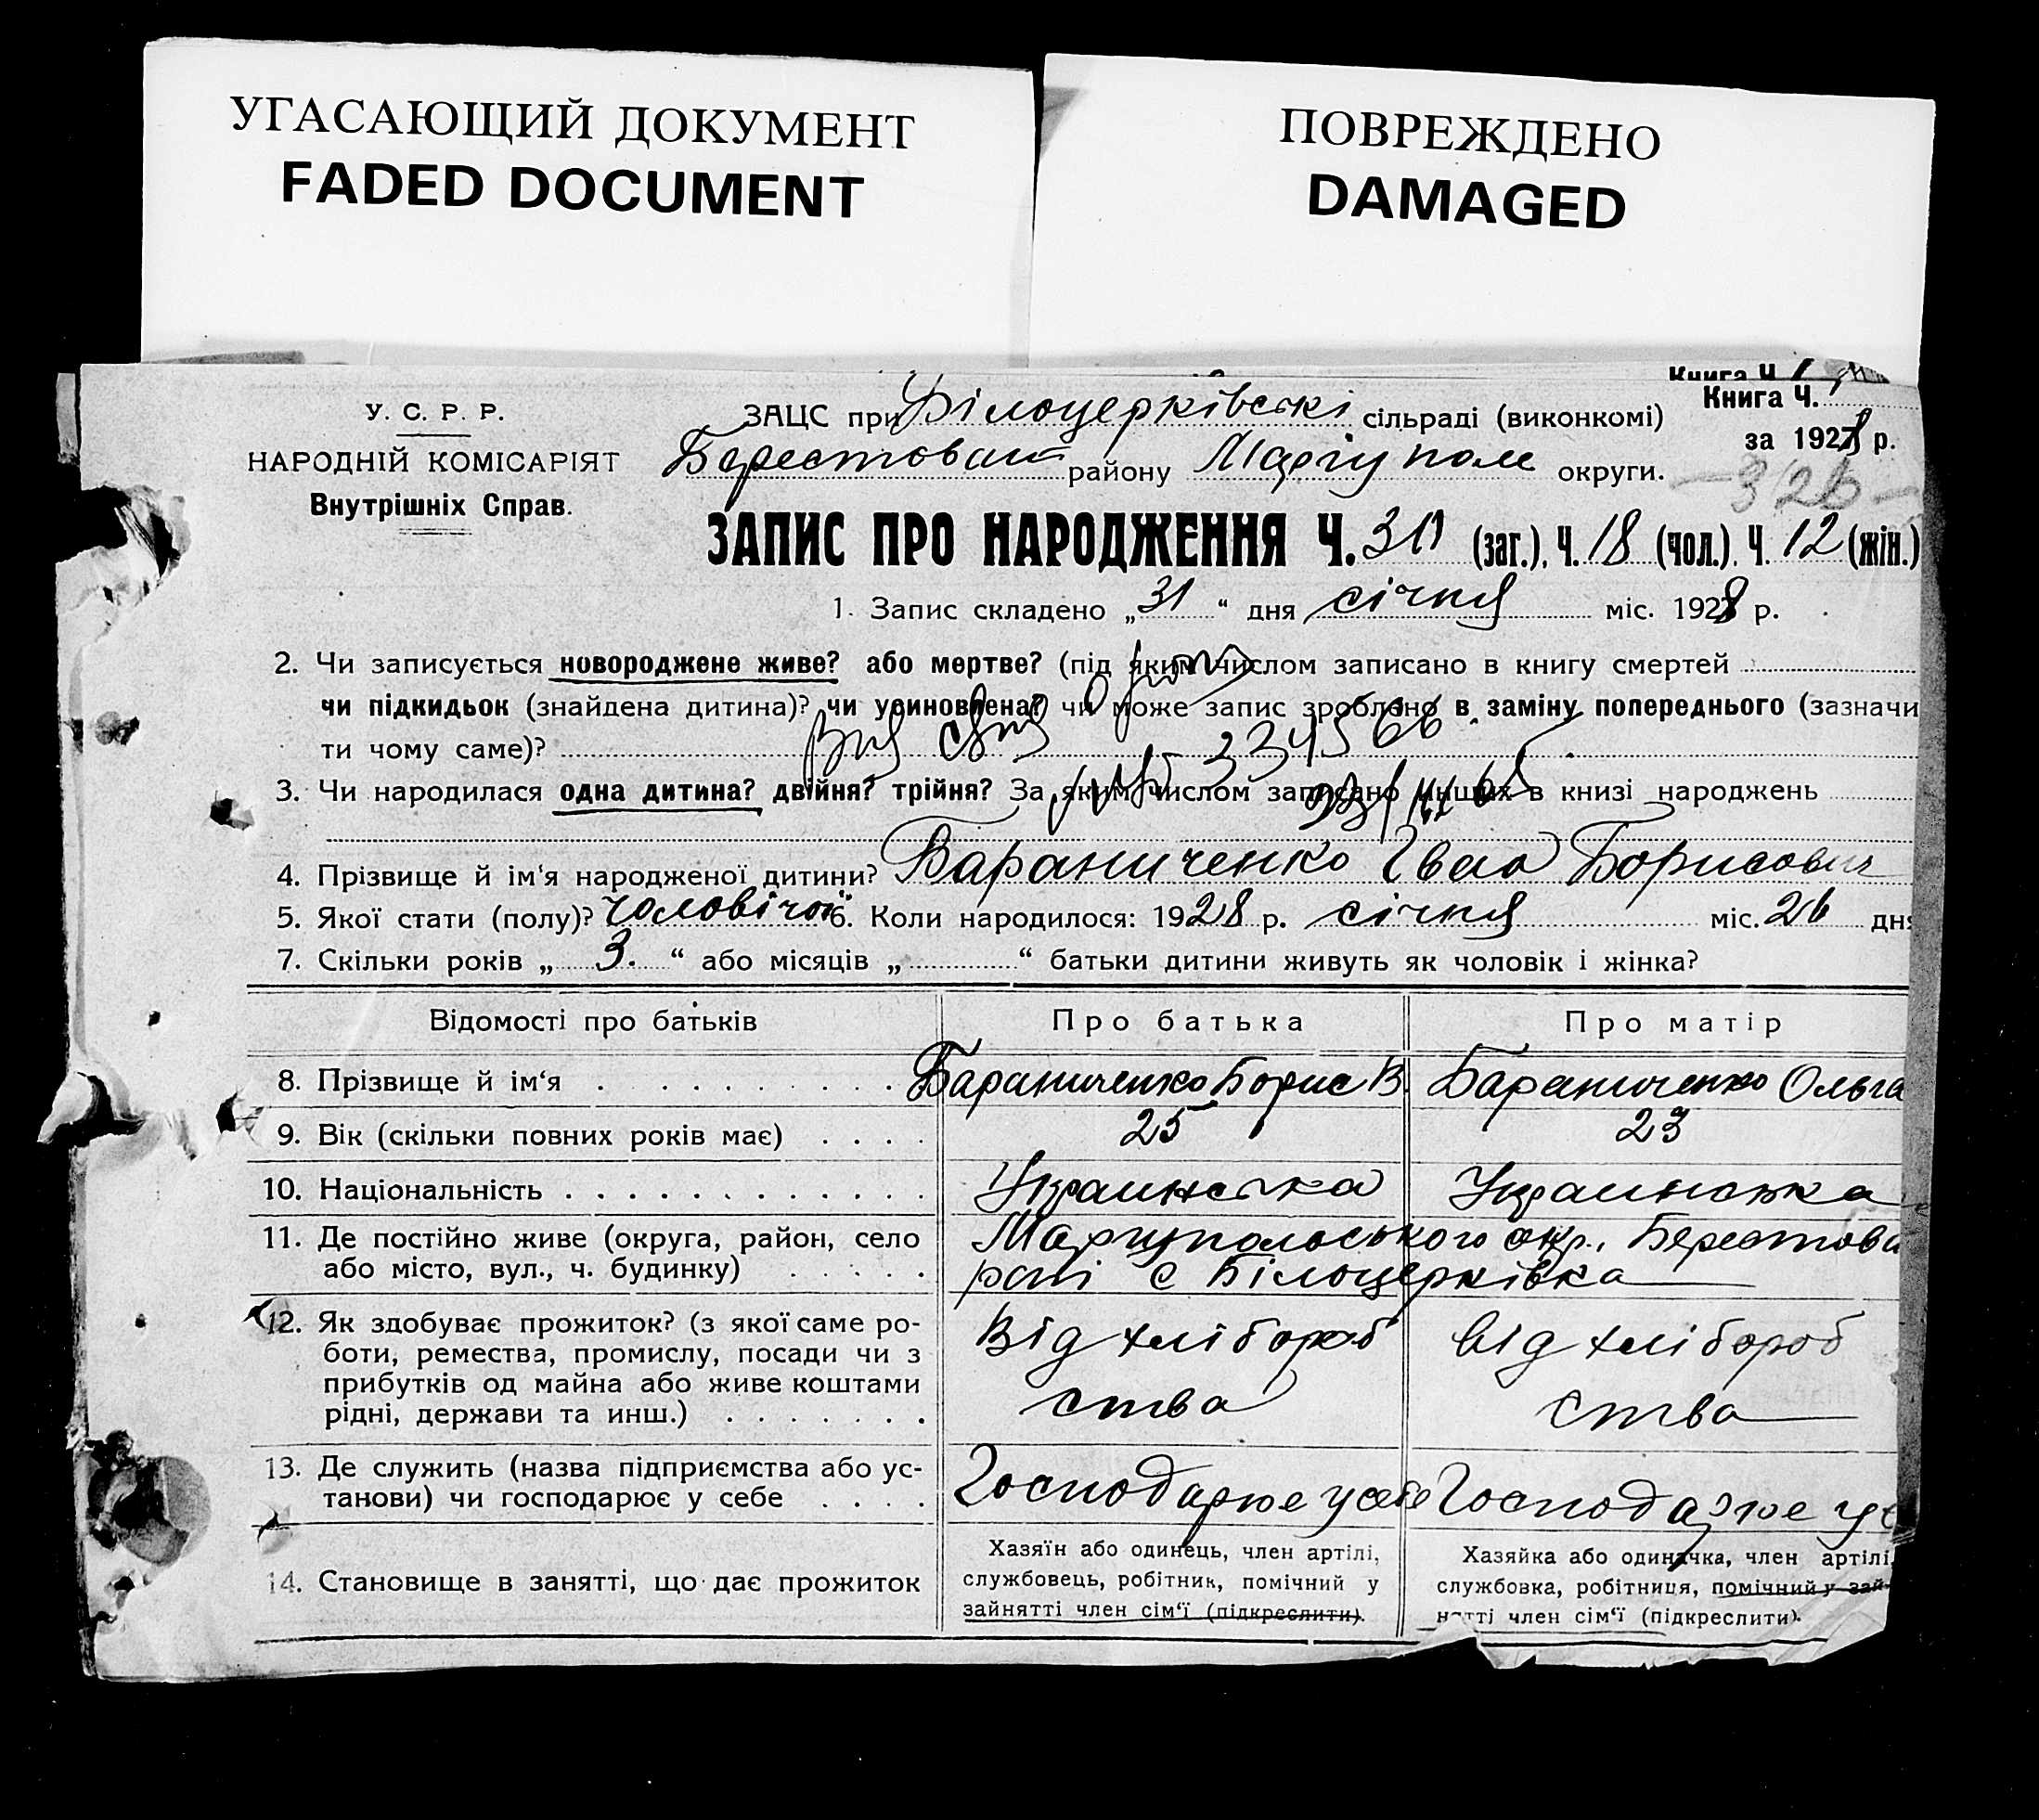 УГАСАЮЩИЙ ДОКУМЕНТ
FADED DOCUMENT
ПОВРЕЖДЕНО
DAMAGED
Книга Ч.
Книга Ч.
за 1928 р.
326
У. С. Р. Р.
НАРОДНІЙ КОМІСАРІЯТ
Внутрішніх Справ.
ЗАЦС при Білоцерківські сільраді (виконкомі)
Берестован району Маріуполь округи.
ЗАПИС ПРО НАРОДЖЕННЯ Ч. 30 (заг.), Ч. 18 (чол.). Ч. 12 (жін.)
1. Запис складено „31“ дня січня міс. 1928 р.
2. Чи записується новороджене живе? або мертве? (під яким числом записано в книгу смертей
чи підкидьок (знайдена дитина)? чи усиновлена? чи може запис зроблено в заміну попереднього (зазначи
ти чому саме)?
3. Чи народилася одна дитина? двійня? трійня? За яким числом записано инших в книзі народжень
4. Прізвище й ім‘я народженої дитини? Бараниченко Іван Борисович
5. Якої стати (полу)? чоловічої 6. Коли народилося: 1928 р. січня міс. 26 дня
7. Скільки років „3.“ або місяців „ “ батьки дитини живуть як чоловік і жінка?
Відомості про батьків Про батька Про матір
8. Прізвище й ім‘я Бараниченко Борис В. Бараниченко Ольга
9. Вік (скільки повних років має) 25 23
10. Національність Украинська Украинська
11. Де постійно живе (округа, район, село Маріупольського окр., Берестова
або місто, вул., ч. будинку) рані с Білоцерківка
12. Як здобуває прожиток? (з якої саме ро- Від хлібороб від хлібороб
боти, ремества, промислу, посади чи з
прибутків од майна або живе коштами ства ства
рідні, держави та инш.)
13. Де служить (назва підприємства або ус- Господарює у себе Господарює у с
танови) чи господарює у себе
14. Становище в занятті, що дає прожиток
Хазяїн або одинець, член артілі,
службовець, робітник, помічний у
зайнятті член сім‘ї (підкреслити).
Хазяйка або одиначка, член артілі,
службовка, робітниця, помічний у зай-
нятті член сім‘ї (підкреслити).